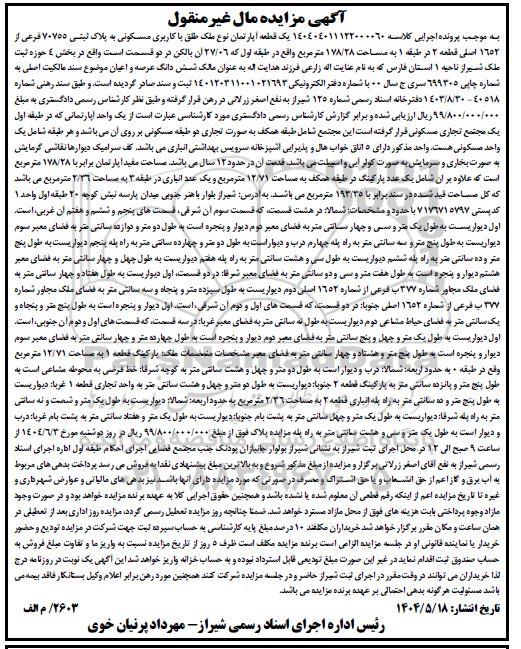 آگهی مزایده مال غیر منقول
به موجب پرونده اجرایی کلاسه ۱۴۰۴۰۴۰۱۱۱۲۲۰۰۰۰۶۰ یک قطعه آپارتمان نوع ملک طلق با کاربری مسکونی به پلاک ثبتی ۷۰۷۵۵ فرعی از
۱۶۵۲ اصلی قطعه ۲ در طبقه ۱ به مساحت ۱۷۸/۲۸ مترمربع واقع در طبقه اول که ۲۷/۰۶ آن بالکن در دو قسمت است واقع در بخش ۴ حوزه ثبت
ملک شیراز ناحیه ۱ استان فارس که به نام عنایت اله زارعی فرزند هدایت اله به عنوان مالک شش دانگ عرصه و اعیان موضوع سند مالکیت اصلی به
شماره چاپی ۶۹۹۳۰۵ سری ج سال ۰۰ با شماره دفتر الکترونیکی ۱۴۰۱۲۰۳۱۱۰۰۱۰۲۱۶۹۳ ثبت و سند صادر گردیده است. و طبق سند رهنی شماره
۴۰۵۱۸ - ۱۴۰۳/۸/۳۰ دفترخانه اسناد رسمی شماره ۱۲۵ شیراز به نفع اصغر زرلانی در رهن قرار گرفته و طبق نظر کارشناس رسمی دادگستری به مبلغ
۹۹/۸۰۰/۰۰۰/۰۰۰ ریال ارزیابی شده و برابر گزارش کارشناس رسمی دادگستری مورد کارشناسی عبارت است از یک واحد آپارتمانی که در طبقه اول
یک مجتمع تجاری مسکونی قرار گرفته است این مجتمع شامل طبقه همکف به صورت تجاری دو طبقه مسکونی بر روی آن می باشد و هر طبقه شامل یک
واحد مسکونی هست. واحد مذکور دارای ۵ اتاق خواب هال و پذیرایی آشپزخانه سرویس بهداشتی انباری می باشد. کف سرامیک دیوارها نقاشی گرمایش
به صورت بخاری و سرمایش به صورت کولر آبی و اسپلیت می باشد. قدمت آن در حدود ۱۲ سال می باشد. مساحت مفید آپارتمان برابر با ۱۷۸/۲۸ مترمربع
است که علاوه بر آن شامل یک عدد پارکینگ در طبقه همکف به مساحت ۱۲/۷۱ مترمربع و یک عدد انباری در طبقه ۳ به مساحت ۲/۳۶ مترمربع می باشد
که کل مساحت قید شده در سند برابر با ۱۹۳/۳۵ مترمربع می باشد. به آدرس: شیراز بلوار باهنر جنوبی میدان پارسه نبش کوچه ۲۰ طبقه اول واحد ۱
کدپستی ۷۱۷۶۷۱۵۷۹۷ با حدود و مشخصات: شمالا: در هشت قسمت، که قسمت سوم آن شرقی، قسمت های پنجم و ششم و هفتم آن غربی، است.
اول دیواریست به طول یک متر و سی و چهار سانتی متر به فضای معبر دوم دیوار و پنجره است به طول دو متر و دوازده سانتی متر به فضای معبر سوم
دیواریست به طول پنج متر و سه سانتی متر به راه پله چهارم درب و دیوار است به طول دو متر و چهارده سانتی متر به راه پله پنجم دیواریست به طول پنج
متر و ده سانتی متر به راه پله ششم دیواریست به طول سی و هشت سانتی متر به راه پله هفتم دیواریست به طول چهل و چهار سانتی متر به فضای معبر
هشتم دیوار و پنجره است به طول هفت متر و سی و دو سانتی متر به فضای معبر شرقا: در دو قسمت، اول دیواریست به طول هفتاد و چهار سانتی متر به
فضای ملک مجاور شماره ۳۷۷ ب فرعی از شماره ۱۶۵۲ اصلی دوم دیواریست به طول سیزده متر و پنجاه و سه سانتی متر به فضای ملک مجاور شماره
۳۷۷ ب فرعی از شماره ۱۶۵۲ اصلی جنوبا: در دو قسمت، که قسمت های اول و دوم آن شرقی، است. اول دیوار و پنجره است به طول پنج متر و پنجاه و
یک سانتی متر به فضای حیاط مشاعی دوم دیواریست به طول نه سانتی متر به فضای معبر غربا: در سه قسمت، که قسمت های اول و دوم آن جنوبی، است.
اول دیواریست به طول یک متر و چهل و پنج سانتی متر به فضای معبر دوم دیوار و پنجره است به طول چهارده متر و چهار سانتی متر به فضای معبر سوم
دیوار و پنجره است به طول پنج متر و هشتاد و چهار سانتی متر به فضای معبر مشخصات منضمات ملک: پارکینگ قطعه ۱ به مساحت ۱۲/۷۱ مترمربع
واقع در طبقه ۰ به حدود اربعه: شمالا: درب و دیوار است به طول دو متر و چهل و هشت سانتی متر به کوچه شرقا: خط فرضی به محوطه مشاعی است به
طول پنج متر و پانزده سانتی متر به پارکینگ قطعه ۲ جنوبا: دیواریست به طول دو متر و چهل و هشت سانتی متر به واحد تجاری قطعه ۱ غربا: دیواریست
به طول پنج متر و ده سانتی متر به راه پله انباری قطعه ۲ به مساحت ۲/۳۶ مترمربع به حدود اربعه: شمالا: دیواریست به طول یک متر و شصت و نه سانتی
متر به راه پله شرقا: دیواریست به طول یک متر و چهل سانتی متر به پشت بام جنوبا: دیواریست به طول یک متر و هفتاد سانتی متر به پشت بام غربا: درب
و دیوار است به طول یک متر و سی و هشت سانتی متر به راه پله مزایده پلاک فوق از مبلغ ۹۹/۸۰۰/۰۰۰/۰۰۰ ریال در روز دوشنبه مورخ ۱۴۰۴/۶/۳ از
ساعت ۹ صبح الی ۱۲ در محل اجرای ثبت شیراز به نشانی شیراز بولوار جانبازان پودنک جنب مجتمع قضایی اجرای احکام طبقه اول اداره اجرای اسناد
رسمی شیراز به نفع آقای اصغر زرلانی برگزار و مزایده از مبلغ مذکور شروع و به بالاترین مبلغ پیشنهادی نقدا به فروش می رسد پرداخت بدهی های مربوط
به آب برق و گاز اعم از حق انشعاب یا حق اشتراک و مصرف در صورتی که مورد مزایده دارای آنها باشد نیز بدهی های مالیاتی و عوارض شهرداری و
غیره تا تاریخ مزایده اعم از اینکه رقم قطعی آن معلوم شده یا نشده باشد و همچنین حقوق اجرایی کلا به عهده برنده مزایده خواهد بود و در صورت وجود
مازاد وجوه پرداختی بابت هزینه های فوق از محل مازاد مسترد خواهد شد. ضمنا چنانچه روز مزایده تعطیل رسمی گردد، مزایده روز اداری بعد از تعطیلی در
همان ساعت و مکان مقرر برگزار خواهد شد خریداران مکلفند ۱۰ درصد مبلغ پایه کارشناسی به حساب سپرده ثبت جهت شرکت در مزایده تودیع و حضور
خریدار یا نماینده قانونی او در جلسه مزایده الزامی است برنده مزایده مکلف است ظرف ۵ روز از تاریخ مزایده نسبت به واریز ما و تفاوت مبلغ فروش به
حساب صندوق ثبت اقدام نماید در غیر این صورت مبلغ تودیعی قابل استرداد نبوده و به حساب خزانه واریز خواهد شد این آگهی یک نوبت در روزنامه درج
لذا خریداران می توانند در وقت مقرر در اجرای ثبت شیراز حاضر و در جلسه مزایده شرکت کنند همچنین مورد رهن برابر اعلام وکیل بستانکار فاقد بیمه می
باشد مسئولیت هرگونه بدهی احتمالی بر عهده برنده مزایده می باشد.
تاریخ انتشار: ۱۴۰۴/۵/۱۸
۲۶۰۳/ م الف
رئیس اداره اجرای اسناد رسمی شیراز - مهرداد پرنیان خوی